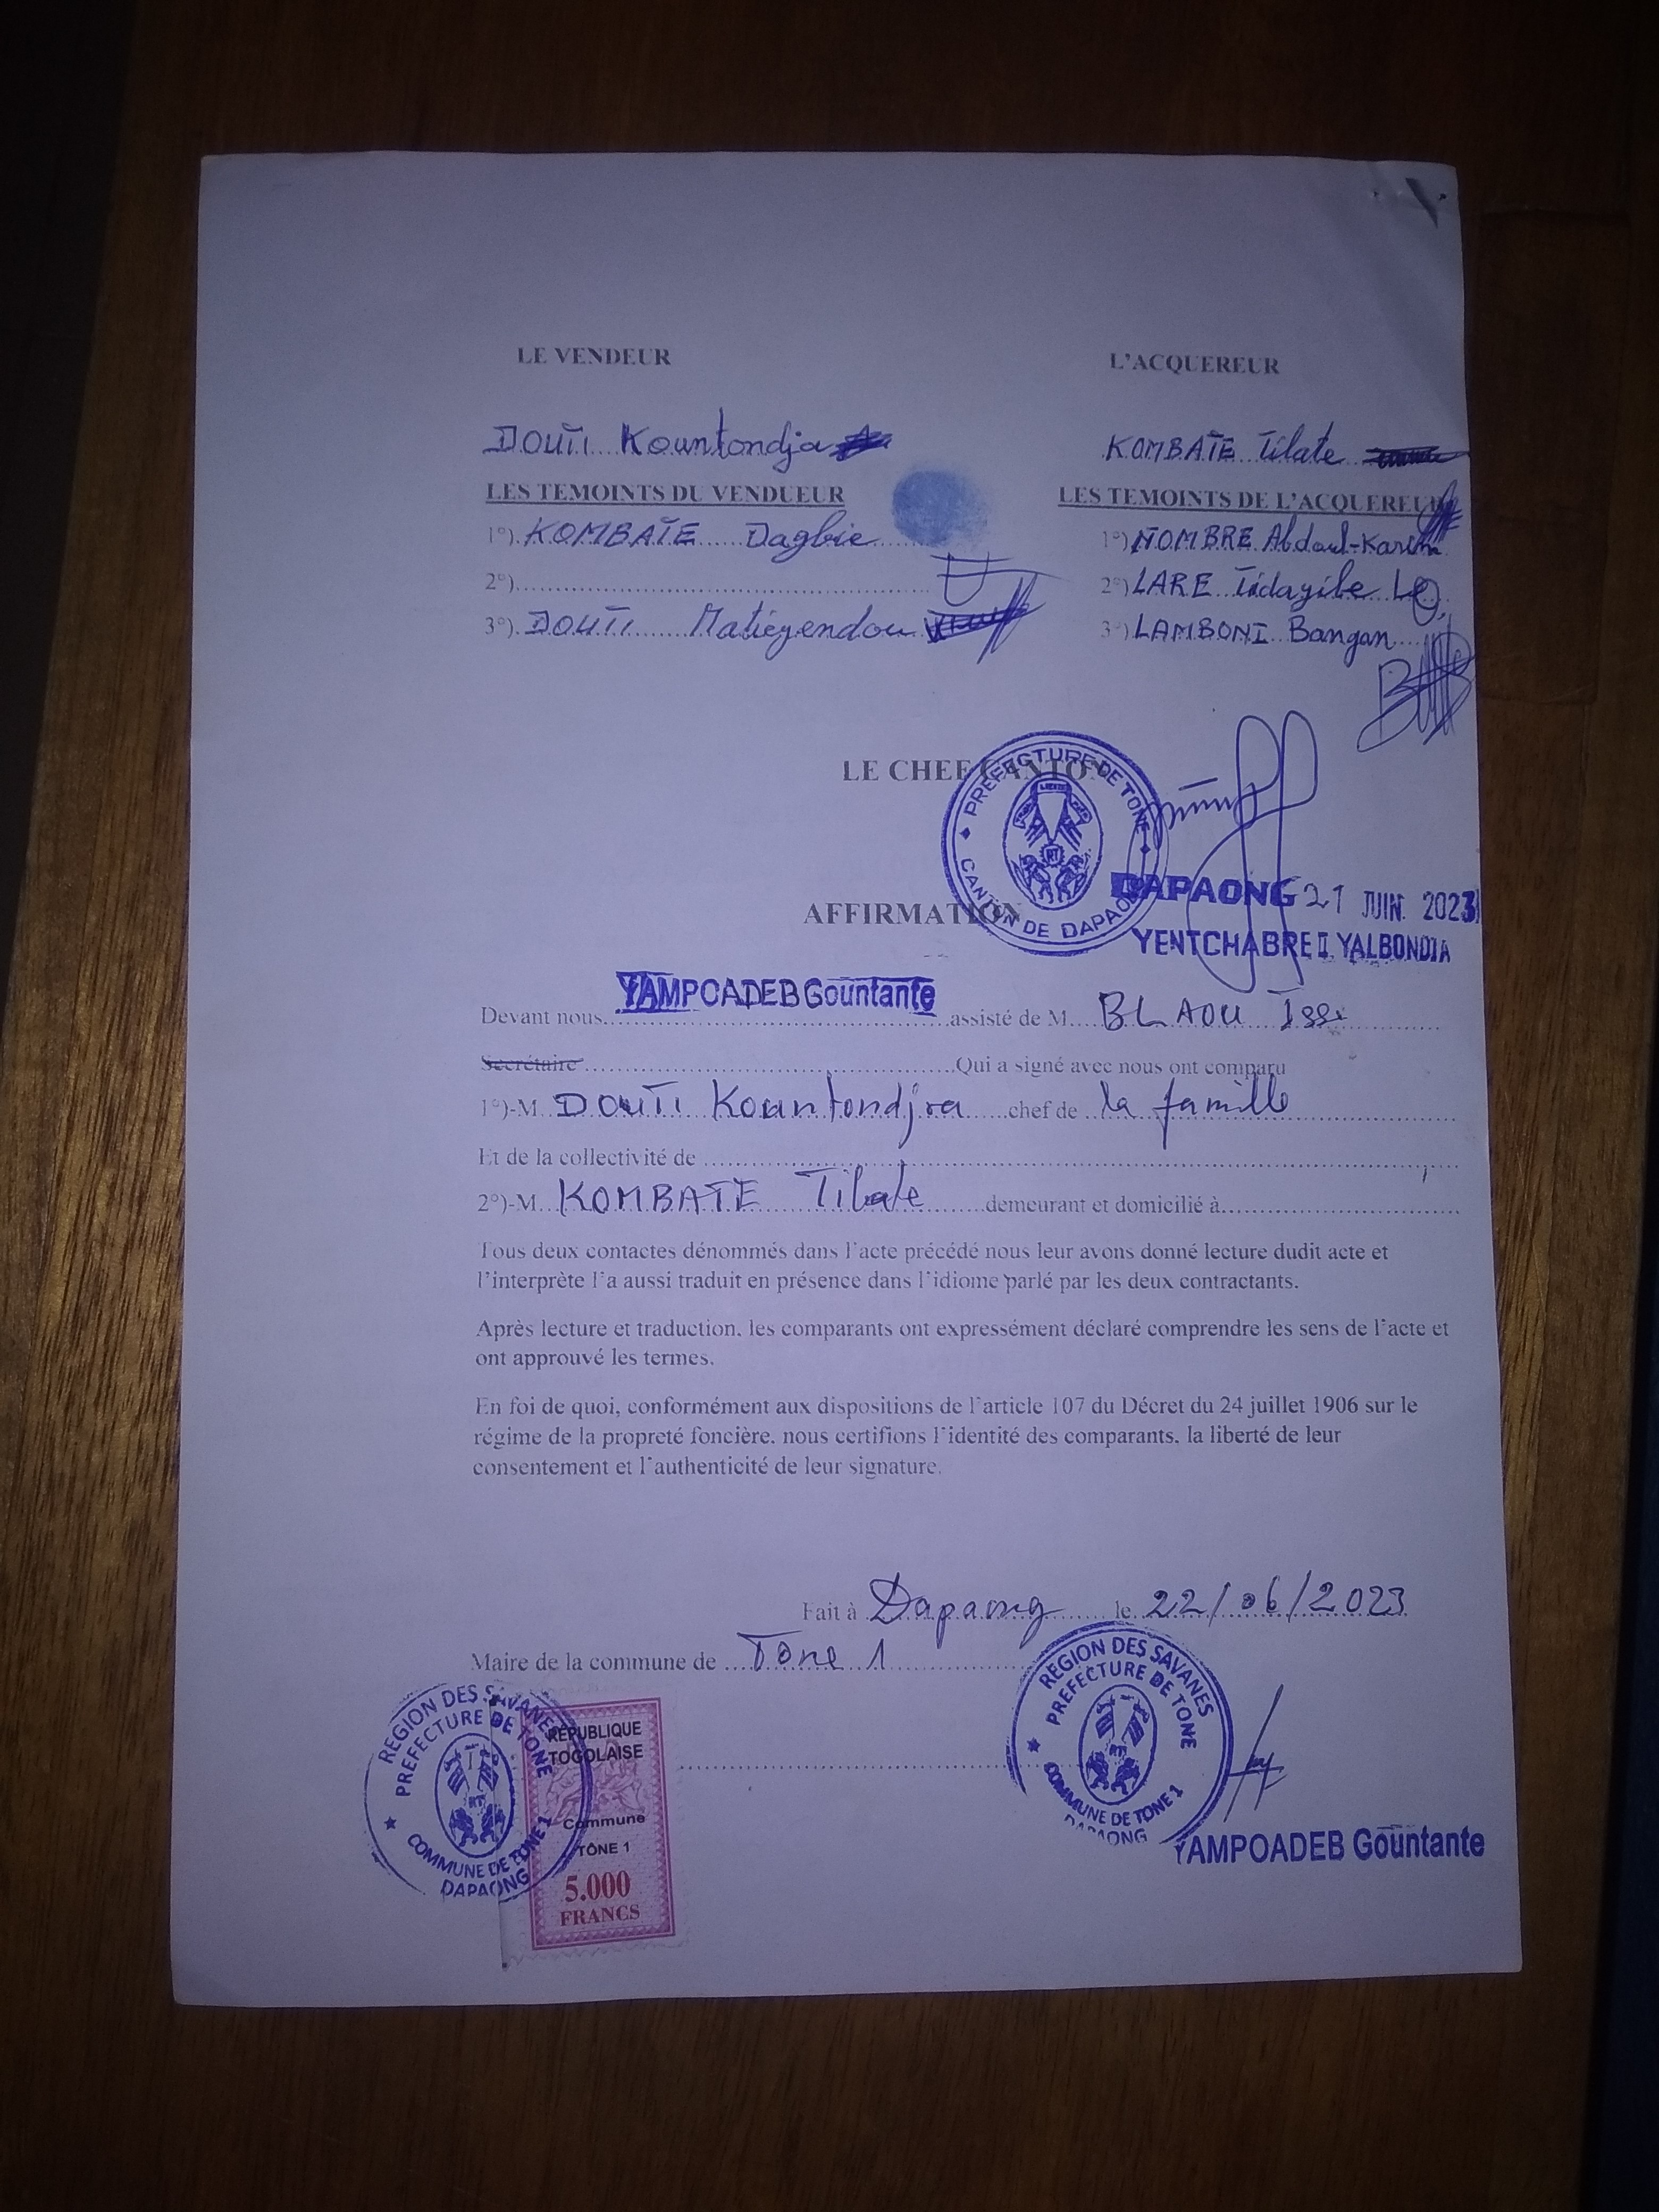 LE VENDEUR
L'ACQUEREUR
DOUTI Kountondja
KOMBATE Tilate
LES TEMOINTS DU VENDUEUR
LES TEMOINTS DE L'ACQUEREUR
1°). KOMBATE Dagbie
1°) NOMBRE Abdoul-Karim
2°)
2°) LARE Tidayibe
3°). DOUTI Matiéyendou
3°) LAMBONI Bangan
LE CHEF CANTON
PREFECTURE DE TONE
CANTON DE DAPAONG
DAPAONG 21 JUIN 2023
YENTCHABRE I. YALBONDJA
AFFIRMATION
YAMPOADEB Gountante
Devant nous assisté de M. BLAOU Isse
Secrétaire Qui a signé avec nous ont comparu
1°)-M. DOUTI Kountondjoa chef de la famille
Et de la collectivité de
2°)-M. KOMBATE Tilate demeurant et domicilié à
Tous deux contactes dénommés dans l'acte précédé nous leur avons donné lecture dudit acte et
l'interprète l'a aussi traduit en présence dans l'idiome parlé par les deux contractants.
Après lecture et traduction, les comparants ont expressément déclaré comprendre les sens de l'acte et
ont approuvé les termes.
En foi de quoi, conformément aux dispositions de l'article 107 du Décret du 24 juillet 1906 sur le
régime de la propreté foncière, nous certifions l'identité des comparants, la liberté de leur
consentement et l'authenticité de leur signature.
Fait à Dapaong le 22/06/2023
Maire de la commune de Tône 1
REGION DES SAVANES
PREFECTURE DE TONE
COMMUNE DE TONE 1
DAPAONG
RÉPUBLIQUE
TOGOLAISE
Commune
TÔNE 1
5.000
FRANCS
REGION DES SAVANES
PREFECTURE DE TONE
COMMUNE DE TONE 1
DAPAONG
YAMPOADEB Gountante